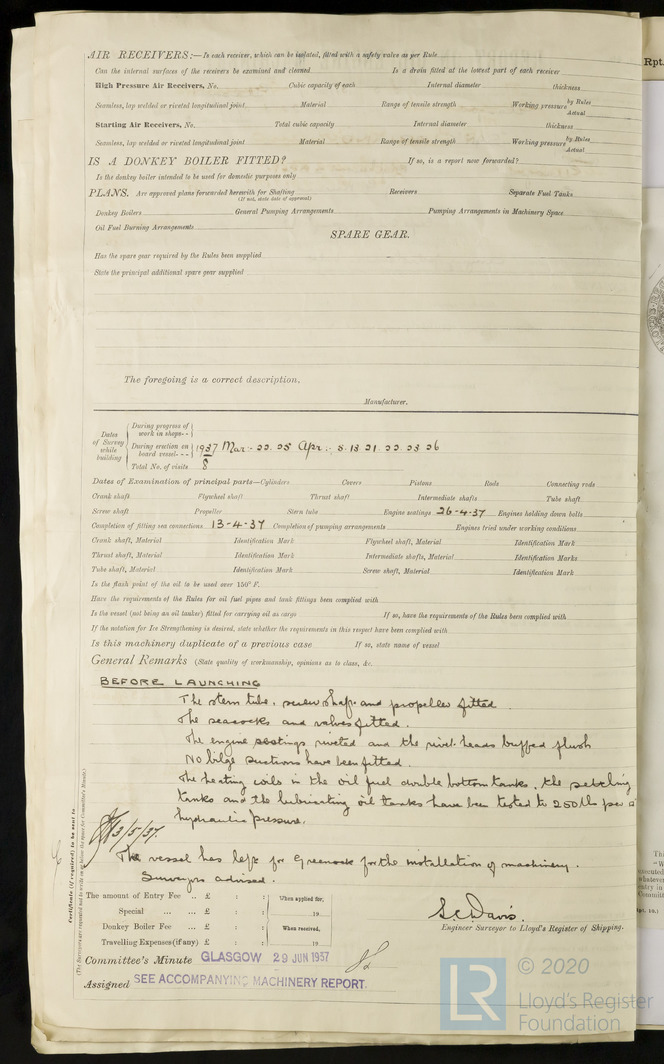 AIR RECEIVERS:—Is each receiver, which can be isolated, fitted with a safety valve as per Rule
Can the internal surfaces of the receivers be examined and cleaned Is a drain fitted at the lowest part of each receiver
High Pressure Air Receivers, No. Cubic capacity of each Internal diameter thickness
Seamless, lap welded or riveted longitudinal joint Material Range of tensile strength Working pressure by Rules Actual
Starting Air Receivers, No. Total cubic capacity Internal diameter thickness
Seamless, lap welded or riveted longitudinal joint Material Range of tensile strength Working pressure by Rules Actual
IS A DONKEY BOILER FITTED? If so, is a report now forwarded?
Is the donkey boiler intended to be used for domestic purposes only
PLANS. Are approved plans forwarded herewith for Shafting Receivers Separate Fuel Tanks
(If not, state date of approval)
Donkey Boilers General Pumping Arrangements Pumping Arrangements in Machinery Space
Oil Fuel Burning Arrangements
SPARE GEAR.
Has the spare gear required by the Rules been supplied
State the principal additional spare gear supplied
The foregoing is a correct description,
Manufacturer.
Dates of Survey while building
During progress of work in shops - -
During erection on board vessel - - - 1937 Mar - 22. 25 Apr - 8. 13. 21. 22. 23. 26
Total No. of visits 8
Dates of Examination of principal parts—Cylinders Covers Pistons Rods Connecting rods
Crank shaft Flywheel shaft Thrust shaft Intermediate shafts Tube shaft
Screw shaft Propeller Stern tube Engine seatings 26-4-37 Engines holding down bolts
Completion of fitting sea connections 13-4-37 Completion of pumping arrangements Engines tried under working conditions
Crank shaft, Material Identification Mark Flywheel shaft, Material Identification Mark
Thrust shaft, Material Identification Mark Intermediate shafts, Material Identification Marks
Tube shaft, Material Identification Mark Screw shaft, Material Identification Mark
Is the flash point of the oil to be used over 150° F.
Have the requirements of the Rules for oil fuel pipes and tank fittings been complied with
Is the vessel (not being an oil tanker) fitted for carrying oil as cargo If so, have the requirements of the Rules been complied with
If the notation for Ice Strengthening is desired, state whether the requirements in this respect have been complied with
Is this machinery duplicate of a previous case If so, state name of vessel
General Remarks (State quality of workmanship, opinions as to class, &c.
BEFORE LAUNCHING
The stern tube, screw shaft and propeller fitted.
The seacocks and valves fitted.
The engine seatings riveted and the rivet heads buffed flush
No bilge suctions have been fitted.
The heating coils in the oil fuel double bottom tanks, the settling
tanks and the lubricating oil tanks have been tested to 250 lb per
hydraulic pressure.
3/5/37.
The vessel has left for Greenock for the installation of machinery.
Surveyors advised.
Certificate (if required) to be sent to
(The Surveyors are requested not to write on or below the space for Committee's Minute.)
The amount of Entry Fee .. £ : : When applied for,
Special ... ... £ : : 19
Donkey Boiler Fee ... £ : : When received,
Travelling Expenses (if any) £ : : 19
S.C. Davis.
Engineer Surveyor to Lloyd's Register of Shipping.
Committee's Minute GLASGOW 29 JUN 1937
Assigned SEE ACCOMPANYING MACHINERY REPORT.
Rpt.
LR
© 2020
Lloyd's Register
Foundation